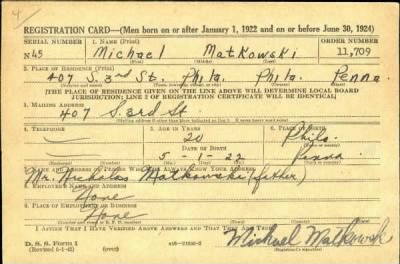 4
REGISTRATION CARD—(Men born on or after January 1, 1922 and on or before June 30, 1924)
SERIAL NUMBER 1. NAME (Print) ORDER NUMBER
N45 Michael Matkowski 11,709
(First) (Middle) (Last)
2. PLACE OF RESIDENCE (Print)
407 S. 3rd St. Phila. Phila. Penna
[THE PLACE OF RESIDENCE GIVEN ON THE LINE ABOVE WILL DETERMINE LOCAL BOARD
JURISDICTION; LINE 2 OF REGISTRATION CERTIFICATE WILL BE IDENTICAL]
3. MAILING ADDRESS
407 S. 3rd St.
[Mailing address if other than place indicated on line 2. If same insert word same]
4. TELEPHONE 5. AGE IN YEARS 6. PLACE OF BIRTH
20 Phila
DATE OF BIRTH
5-1-22 Penna
(Mo.) (Day) (Yr.)
7. NAME AND ADDRESS OF PERSON WHO WILL ALWAYS KNOW YOUR ADDRESS
Mr. Nicholas Matkowski (father)
8. EMPLOYER'S NAME AND ADDRESS
None
9. PLACE OF EMPLOYMENT OR BUSINESS
None
I AFFIRM THAT I HAVE VERIFIED ABOVE ANSWERS AND THAT THEY ARE TRUE.
D. S. S. Form 1
(Revised 6-1-42) (over)
Michael Matkowski